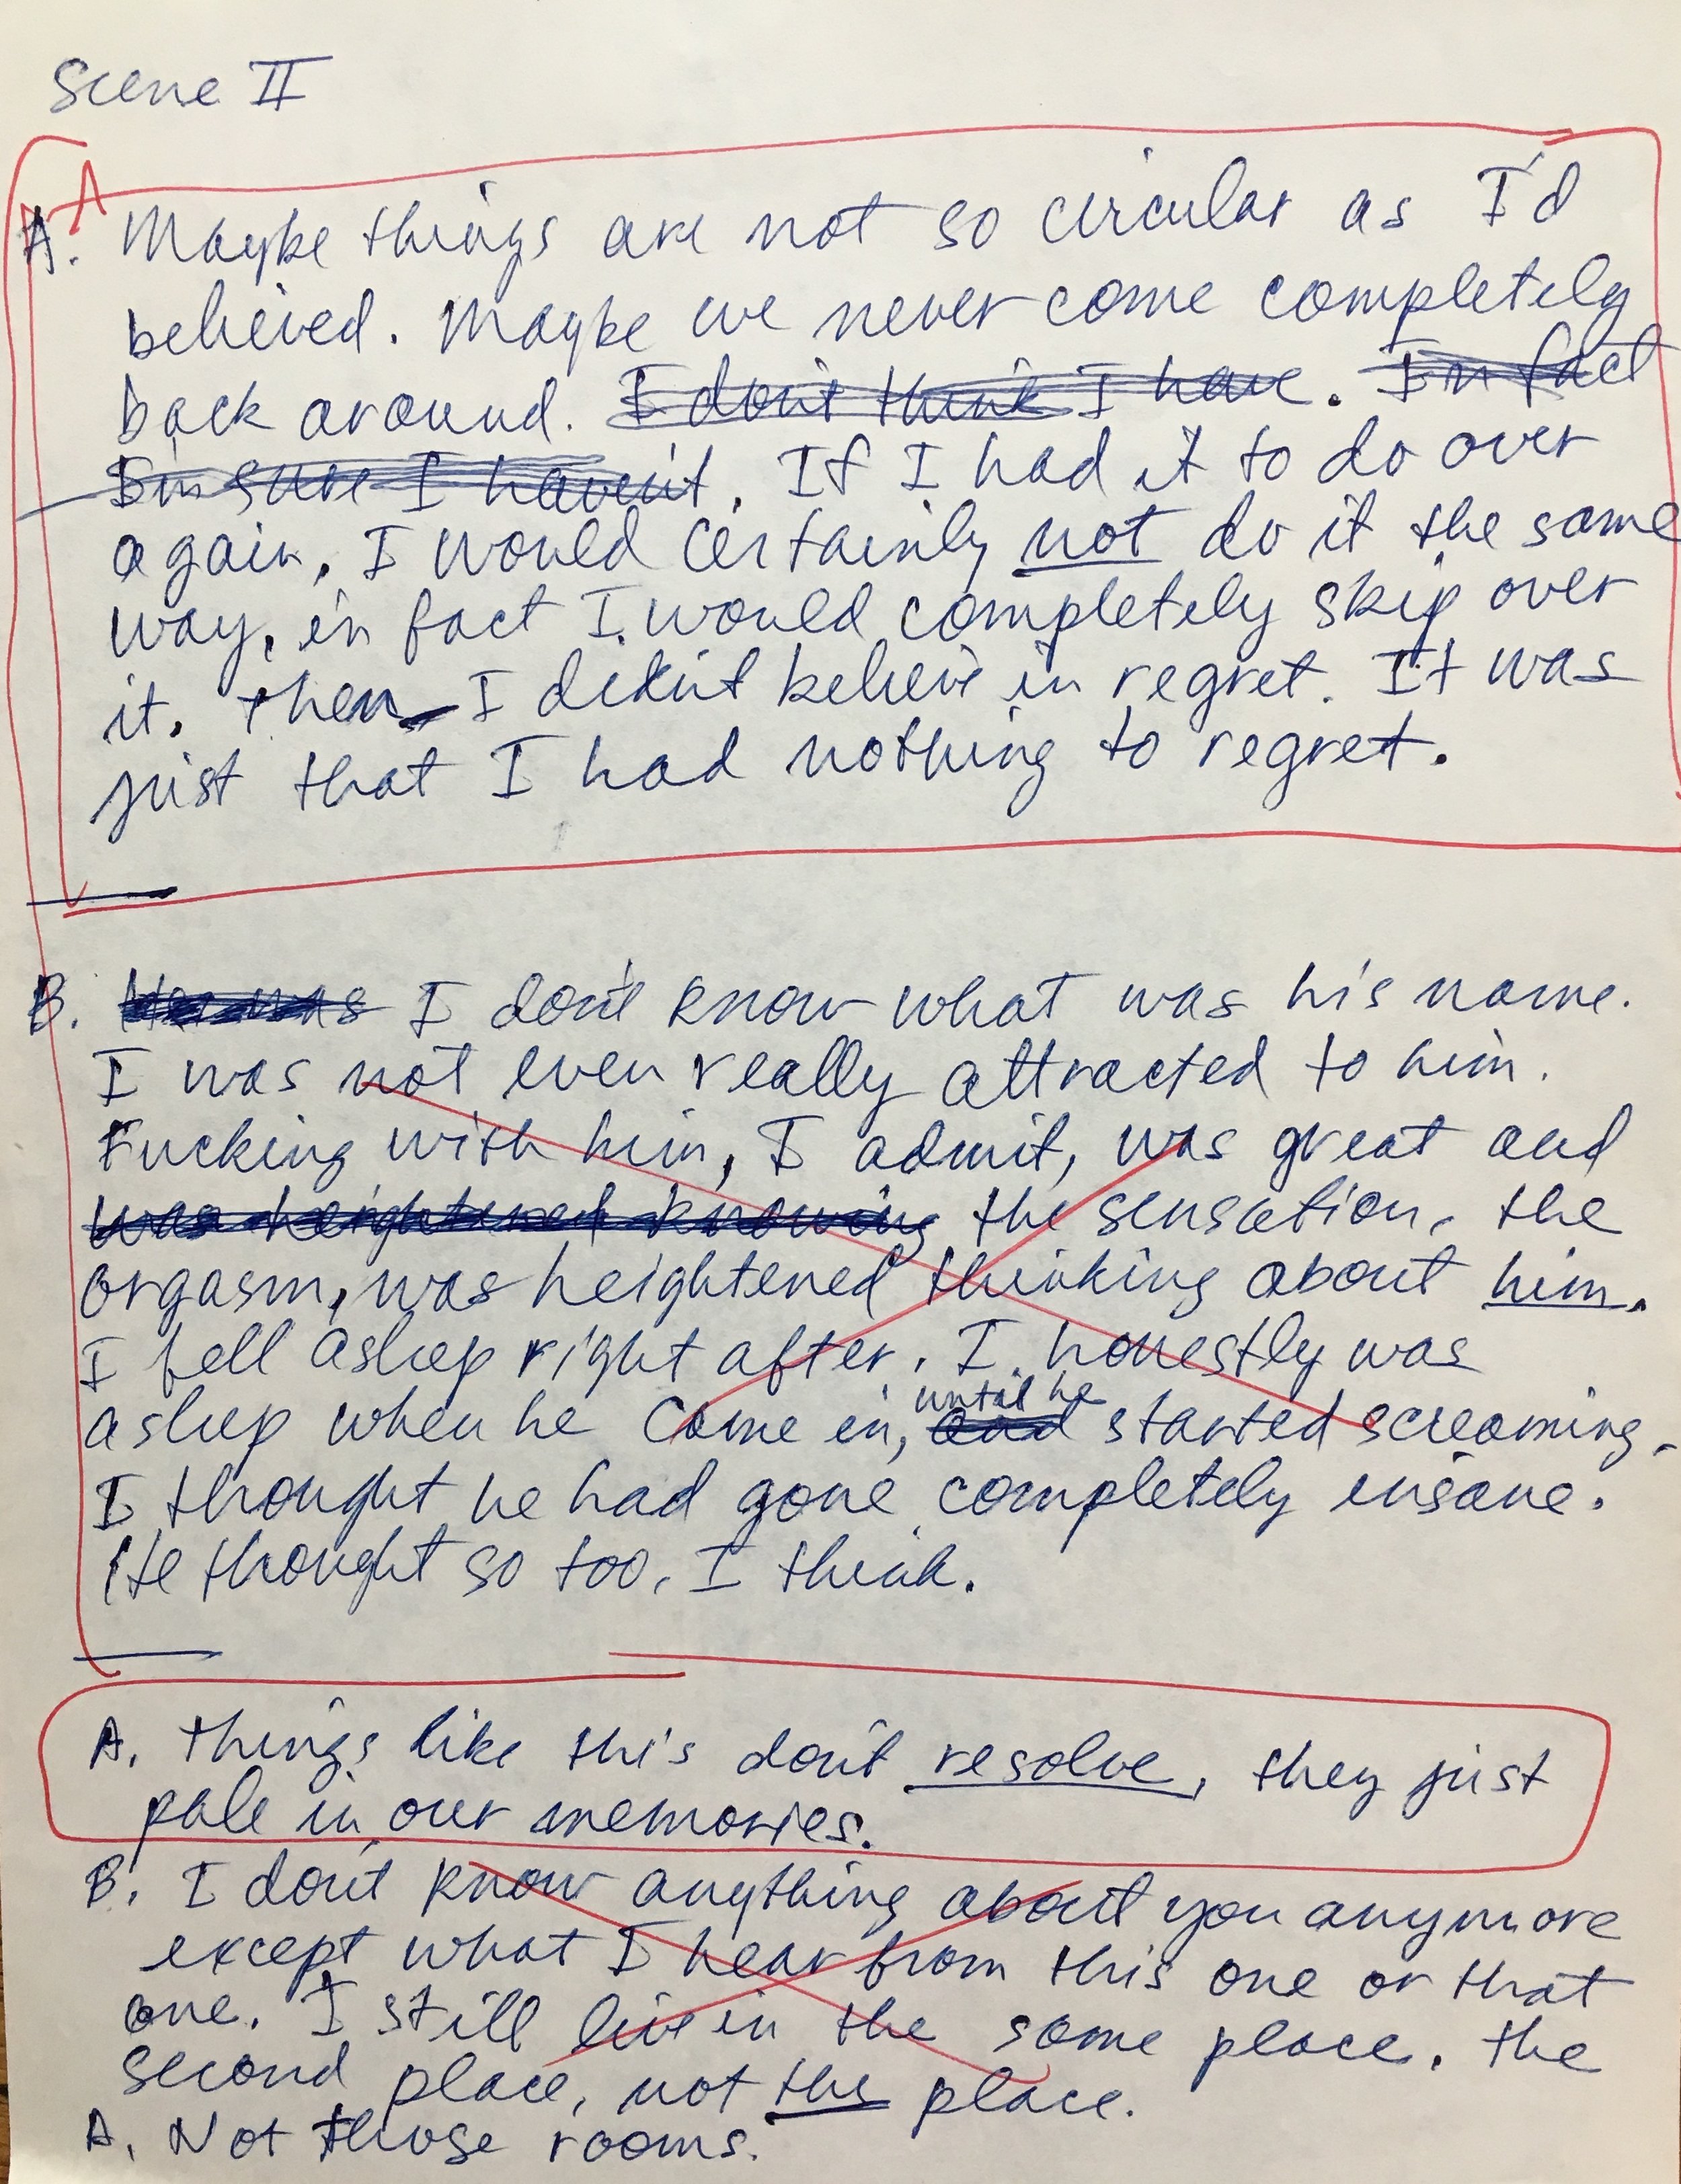 Scene II
A
A. Maybe things are not so circular as I'd
believed. Maybe we never come completely
back around. I don't think I have. In fact
I'm sure I haven't. If I had it to do over
again, I would certainly not do it the same
way, in fact I would completely skip over
it. Then I didn't believe in regret. It was
just that I had nothing to regret.
B. I don't know what was his name.
I was not even really attracted to him.
Fucking with him, I admit, was great and
was heightened knowing the sensation, the
orgasm, was heightened thinking about him.
I fell asleep right after. I honestly was
until he
asleep when he came in, and started screaming.
I thought he had gone completely insane.
He thought so too, I think.
A. Things like this don't resolve, they just
pale in our memories.
B. I don't know anything about you anymore
except what I hear from this one or that
one. I still live in the same place. The
second place, not this place.
A. Not those rooms.